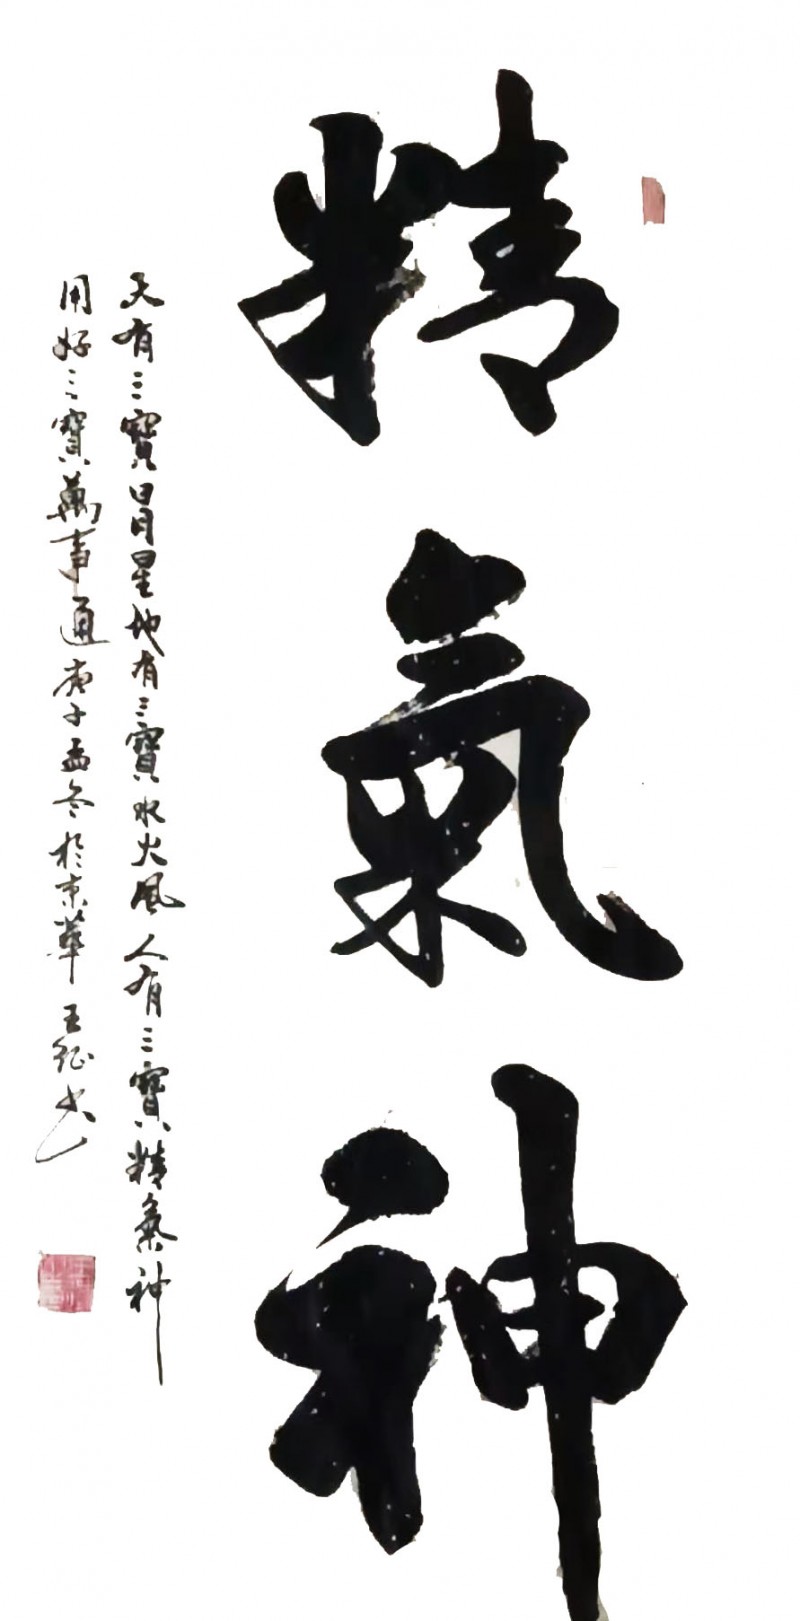 精氣神
天有三寶日月星地有三寶水火風人有三寶精氣神
用好三寶萬事通庚子孟冬於京華王征书